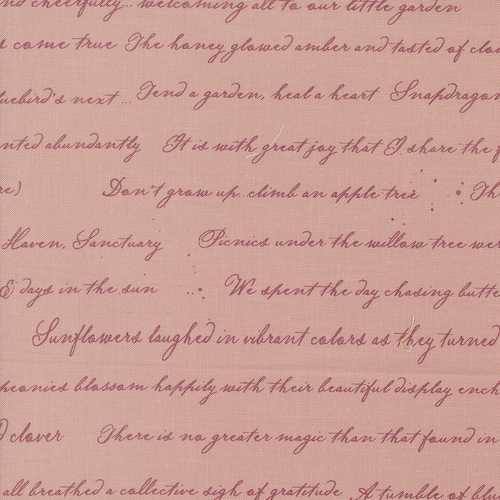 cheerfully... welcoming all to our little garden
come true The honey glowed amber and tasted of
next ... Tend a garden, heal a heart
abundantly It is with great joy that I share the
Don't grow up...climb an apple tree
Haven, Sanctuary Picnics under the willow tree
& days in the sun ... We spent the day chasing
Sunflowers laughed in vibrant colors as they turned
peonies blossom happily with their beautiful display
clover There is no greater magic than that found in
all breathed a collective sigh of gratitude A tumble of